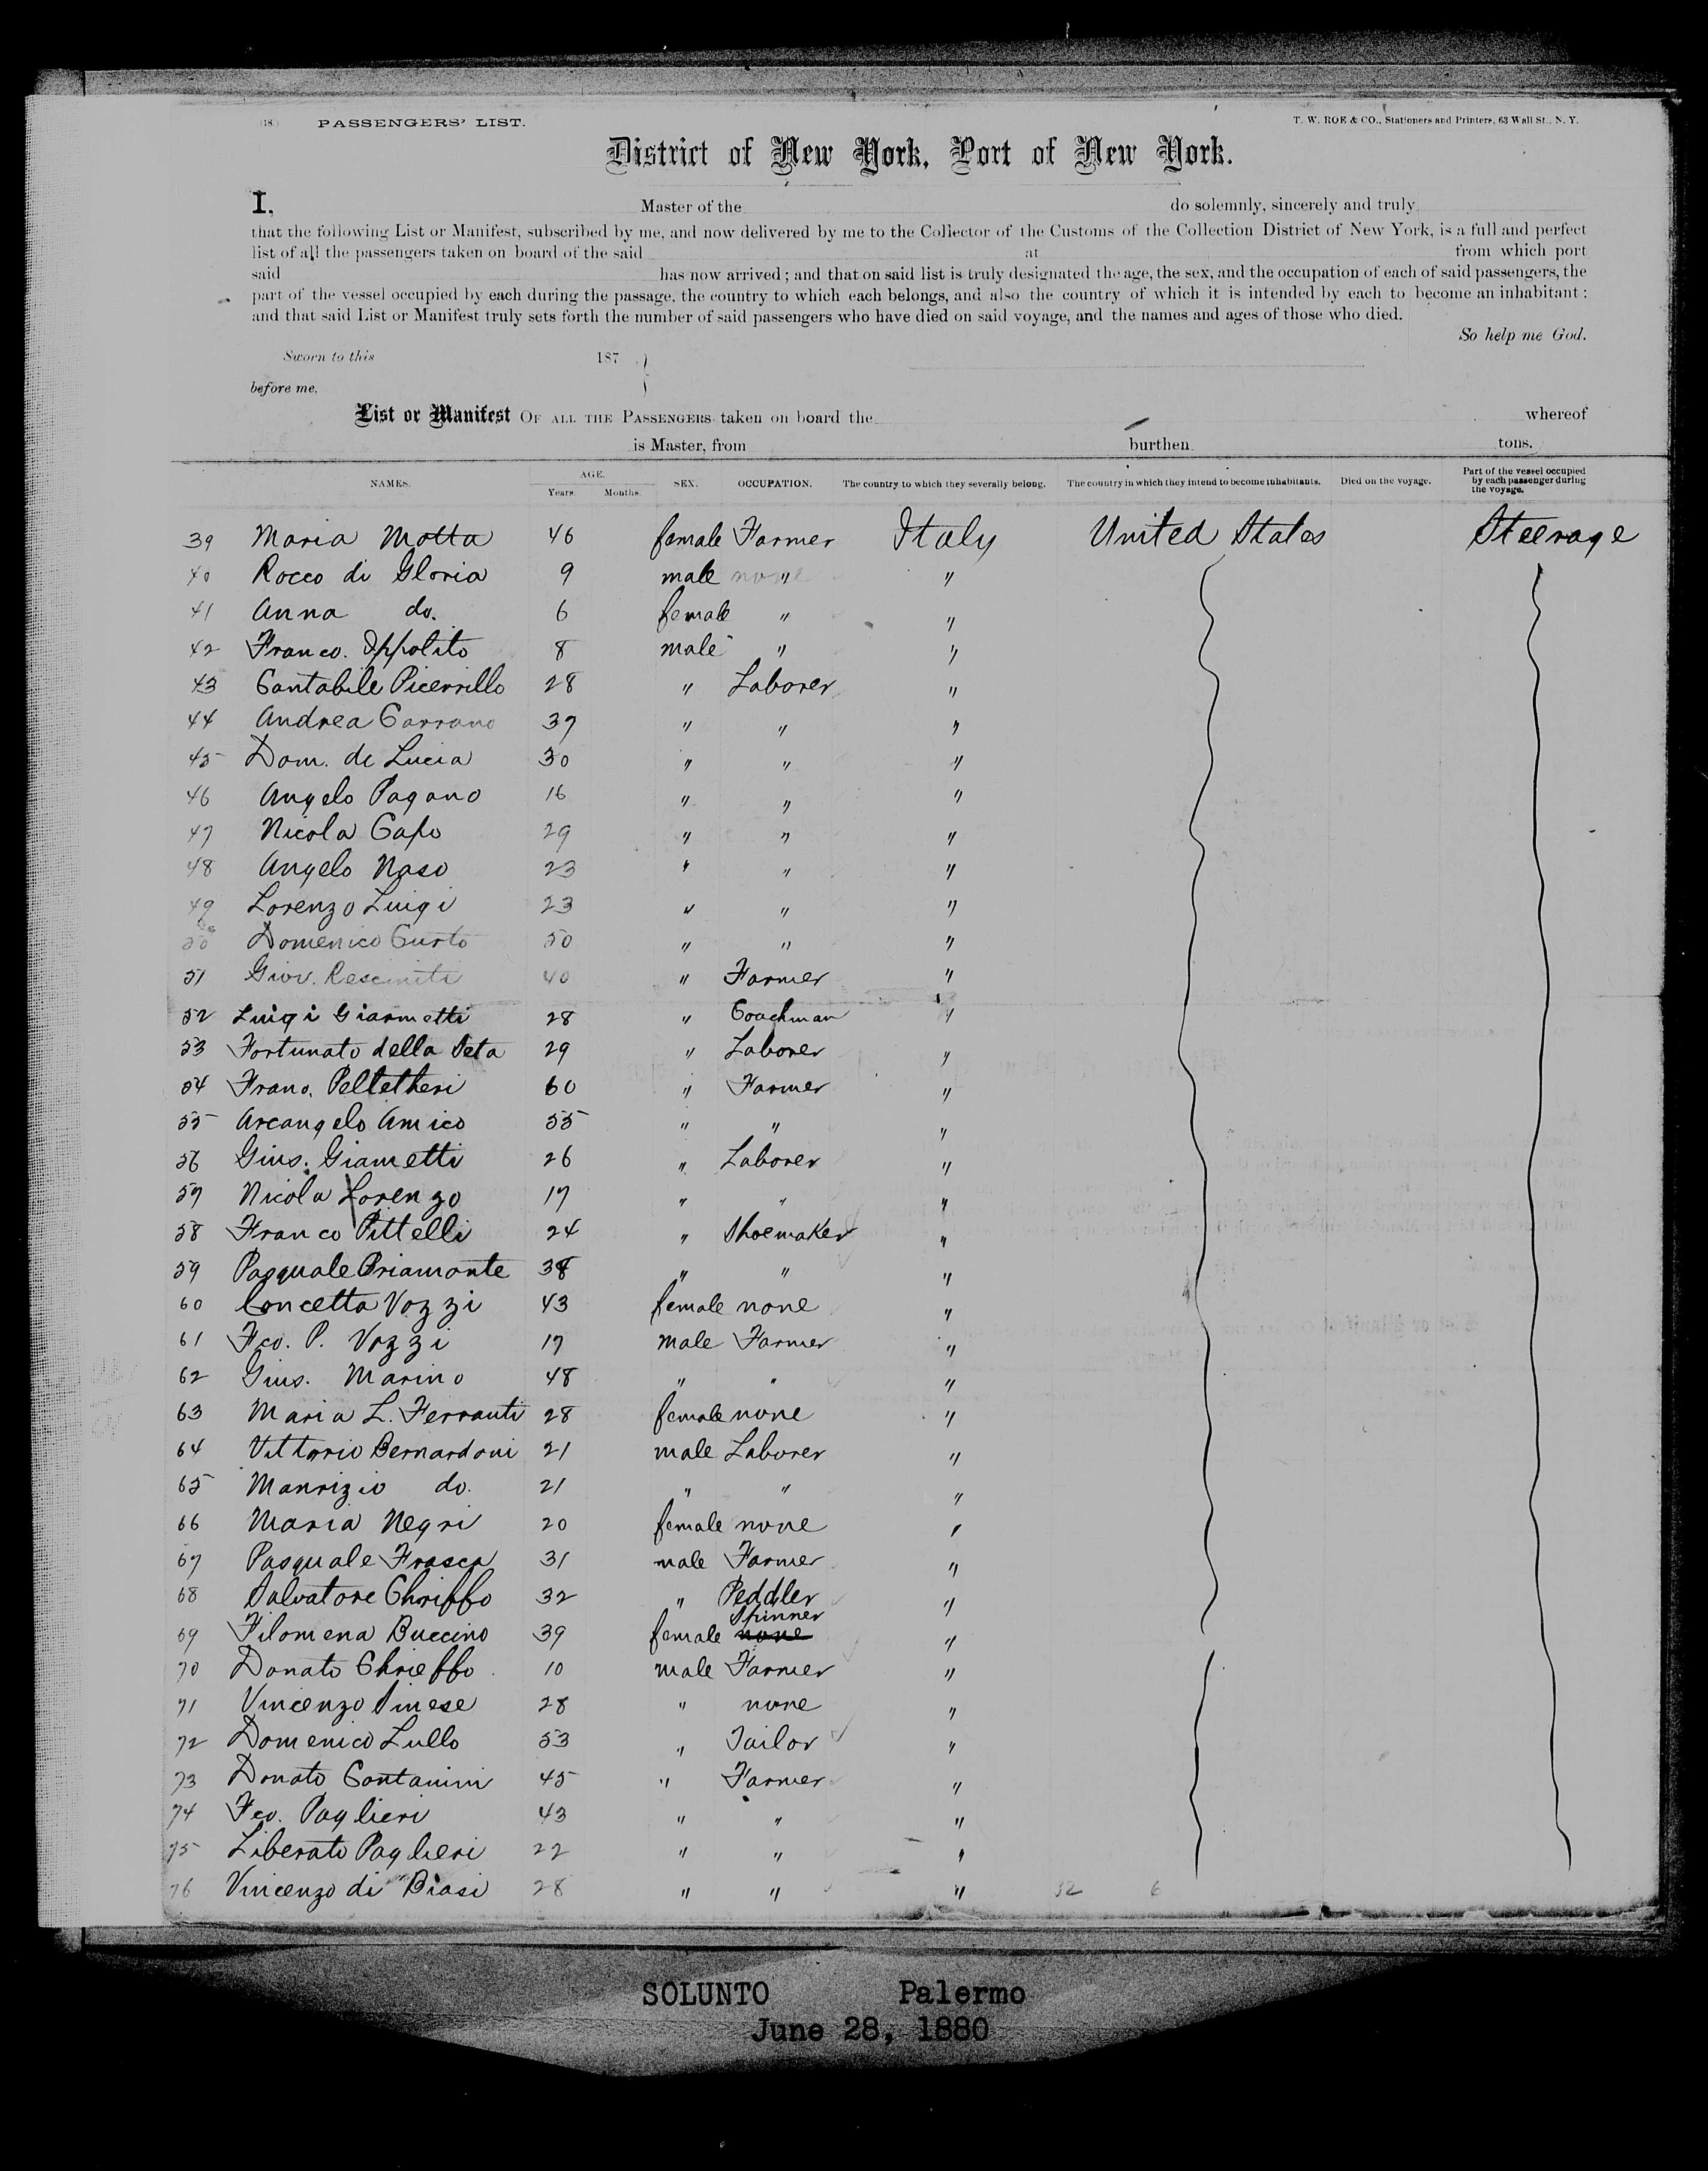 (18.) PASSENGERS' LIST. T. W. ROE & CO., Stationers and Printers, 63 Wall St., N. Y.
District of New York, Port of New York.
I, Master of the do solemnly, sincerely and truly
that the following List or Manifest, subscribed by me, and now delivered by me to the Collector of the Customs of the Collection District of New York, is a full and perfect
list of all the passengers taken on board of the said at from which port
said has now arrived; and that on said list is truly designated the age, the sex, and the occupation of each of said passengers, the
part of the vessel occupied by each during the passage, the country to which each belongs, and also the country of which it is intended by each to become an inhabitant;
and that said List or Manifest truly sets forth the number of said passengers who have died on said voyage, and the names and ages of those who died.
So help me God.
Sworn to this 187
before me,
List or Manifest OF ALL THE PASSENGERS taken on board the whereof
is Master, from burthen tons.
NAMES. AGE. Years. Months. SEX. OCCUPATION. The country to which they severally belong. The country in which they intend to become inhabitants. Died on the voyage. Part of the vessel occupied by each passenger during the voyage.
39 Maria Motta 46 female Farmer Italy United States Steerage
40 Rocco di Gloria 9 male none " "
41 Anna do. 6 female " "
42 Franco. Ippolito 8 male " "
43 Cantabile Picerrillo 28 " Laborer "
44 Andrea Carrano 37 " " "
45 Dom. de Lucia 30 " " "
46 Angelo Pagano 16 " " "
47 Nicola Capo 29 " " "
48 Angelo Naso 23 " " "
49 Lorenzo Luigi 23 " " "
50 Domenico Curto 50 " " "
51 Giov. Resciniti 40 " Farmer "
52 Luigi Giarmetti 28 " Coachman "
53 Fortunato della Seta 29 " Laborer "
54 Franc. Pelletheri 60 " Farmer "
55 Arcangelo Amico 55 " " "
56 Gius. Giametti 26 " Laborer "
57 Nicola Lorenzo 17 " " "
58 Franco Pittelli 24 " Shoemaker "
59 Pasquale Briamonte 38 " " "
60 Concetta Vozzi 43 female none "
61 Fco. P. Vozzi 17 male Farmer "
62 Gius. Marino 48 " " "
63 Maria L. Ferranti 28 female none "
64 Vittorio Bernardoni 21 male Laborer "
65 Manrizio do. 21 " " "
66 Maria Negri 20 female none "
67 Pasquale Frasca 31 male Farmer "
68 Salvatore Chriffo 32 " Peddler "
Spinner
69 Filomena Buccino 39 female none "
70 Donato Chrieffo 10 male Farmer "
71 Vincenzo Sinese 28 " none "
72 Domenico Lullo 53 " Tailor "
73 Donato Contanini 45 " Farmer "
74 Fco. Paglieri 43 " " "
75 Liberato Paglieri 22 " " "
76 Vincenzo di Biasi 28 " " " 32 6
SOLUNTO Palermo
June 28, 1880